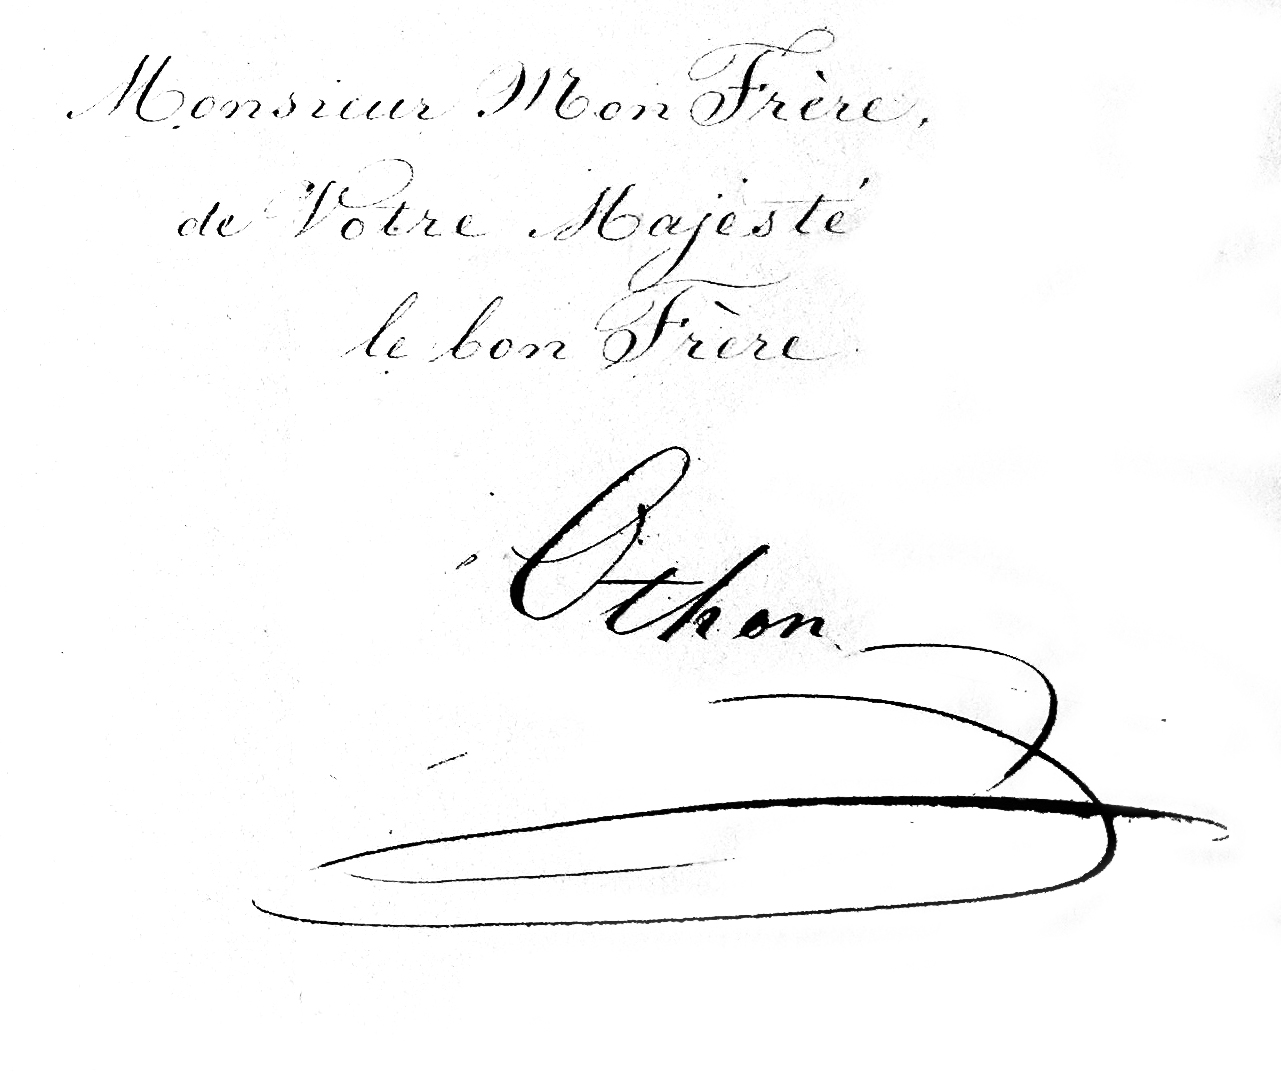 Monsieur Mon Frère,
de Votre Majesté
le bon Frère
Othon